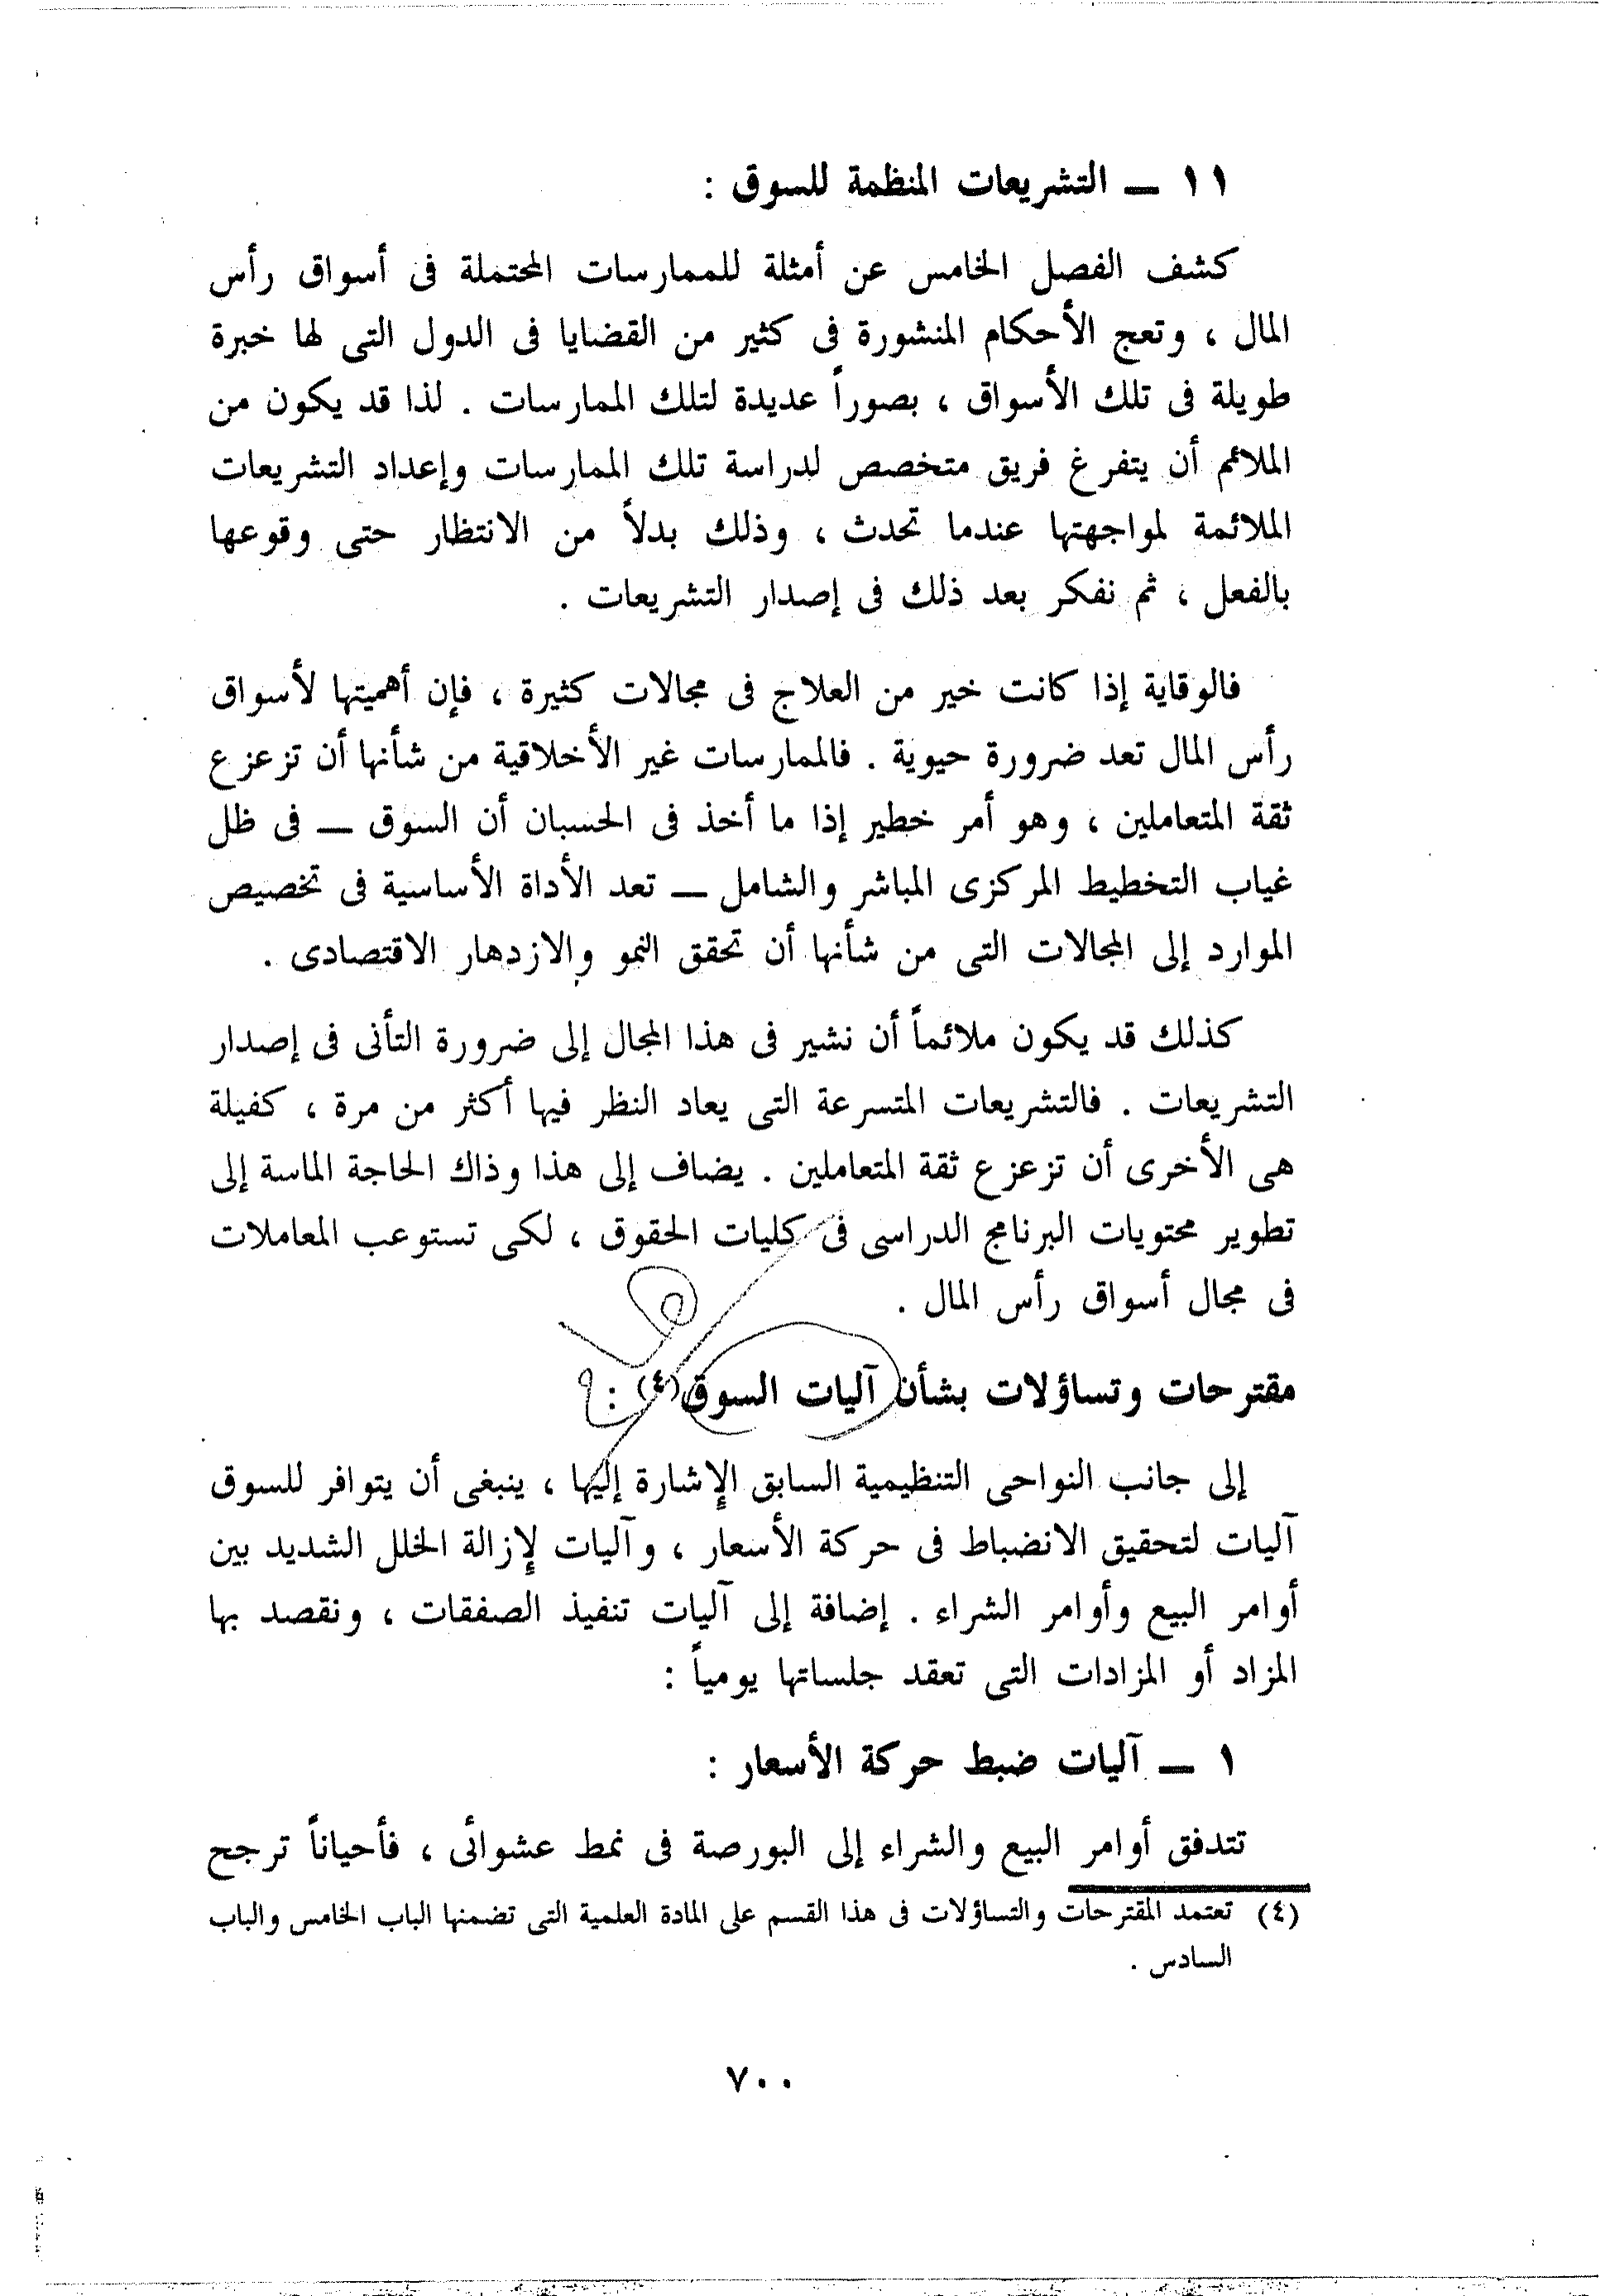 ١١ ــ التشريعات المنظمة للسوق :
كشف الفصل الخامس عن أمثلة للممارسات المحتملة فى أسواق رأس
المال ، وتعج الأحكام المنشورة فى كثير من القضايا فى الدول التى لها خبرة
طويلة فى تلك الأسواق ، بصوراً عديدة لتلك الممارسات . لذا قد يكون من
الملائم أن يتفرغ فريق متخصص لدراسة تلك الممارسات وإعداد التشريعات
الملائمة لمواجهتها عندما تحدث ، وذلك بدلاً من الانتظار حتى وقوعها
بالفعل ، ثم نفكر بعد ذلك فى إصدار التشريعات .
فالوقاية إذا كانت خير من العلاج فى مجالات كثيرة ، فإن أهميتها لأسواق
رأس المال تعد ضرورة حيوية . فالممارسات غير الأخلاقية من شأنها أن تزعزع
ثقة المتعاملين ، وهو أمر خطير إذا ما أخذ فى الحسبان أن السوق ــ فى ظل
غياب التخطيط المركزى المباشر والشامل ــ تعد الأداة الأساسية فى تخصيص
الموارد إلى المجالات التى من شأنها أن تحقق النمو والازدهار الاقتصادى .
كذلك قد يكون ملائماً أن نشير فى هذا المجال إلى ضرورة التأنى فى إصدار
التشريعات . فالتشريعات المتسرعة التى يعاد النظر فيها أكثر من مرة ، كفيلة
هى الأخرى أن تزعزع ثقة المتعاملين . يضاف إلى هذا وذاك الحاجة الماسة إلى
تطوير محتويات البرنامج الدراسى فى كليات الحقوق ، لكى تستوعب المعاملات
فى مجال أسواق رأس المال .
مقترحات وتساؤلات بشأن آليات السوق(٤) :
إلى جانب النواحى التنظيمية السابق الإشارة إليها ، ينبغى أن يتوافر للسوق
آليات لتحقيق الانضباط فى حركة الأسعار ، وآليات لإزالة الخلل الشديد بين
أوامر البيع وأوامر الشراء . إضافة إلى آليات تنفيذ الصفقات ، ونقصد بها
المزاد أو المزادات التى تعقد جلساتها يومياً :
١ ــ آليات ضبط حركة الأسعار :
تتدفق أوامر البيع والشراء إلى البورصة فى نمط عشوائى ، فأحياناً ترجح
(٤) تعتمد المقترحات والتساؤلات فى هذا القسم على المادة العلمية التى تضمنها الباب الخامس والباب
السادس .
٧٠٠